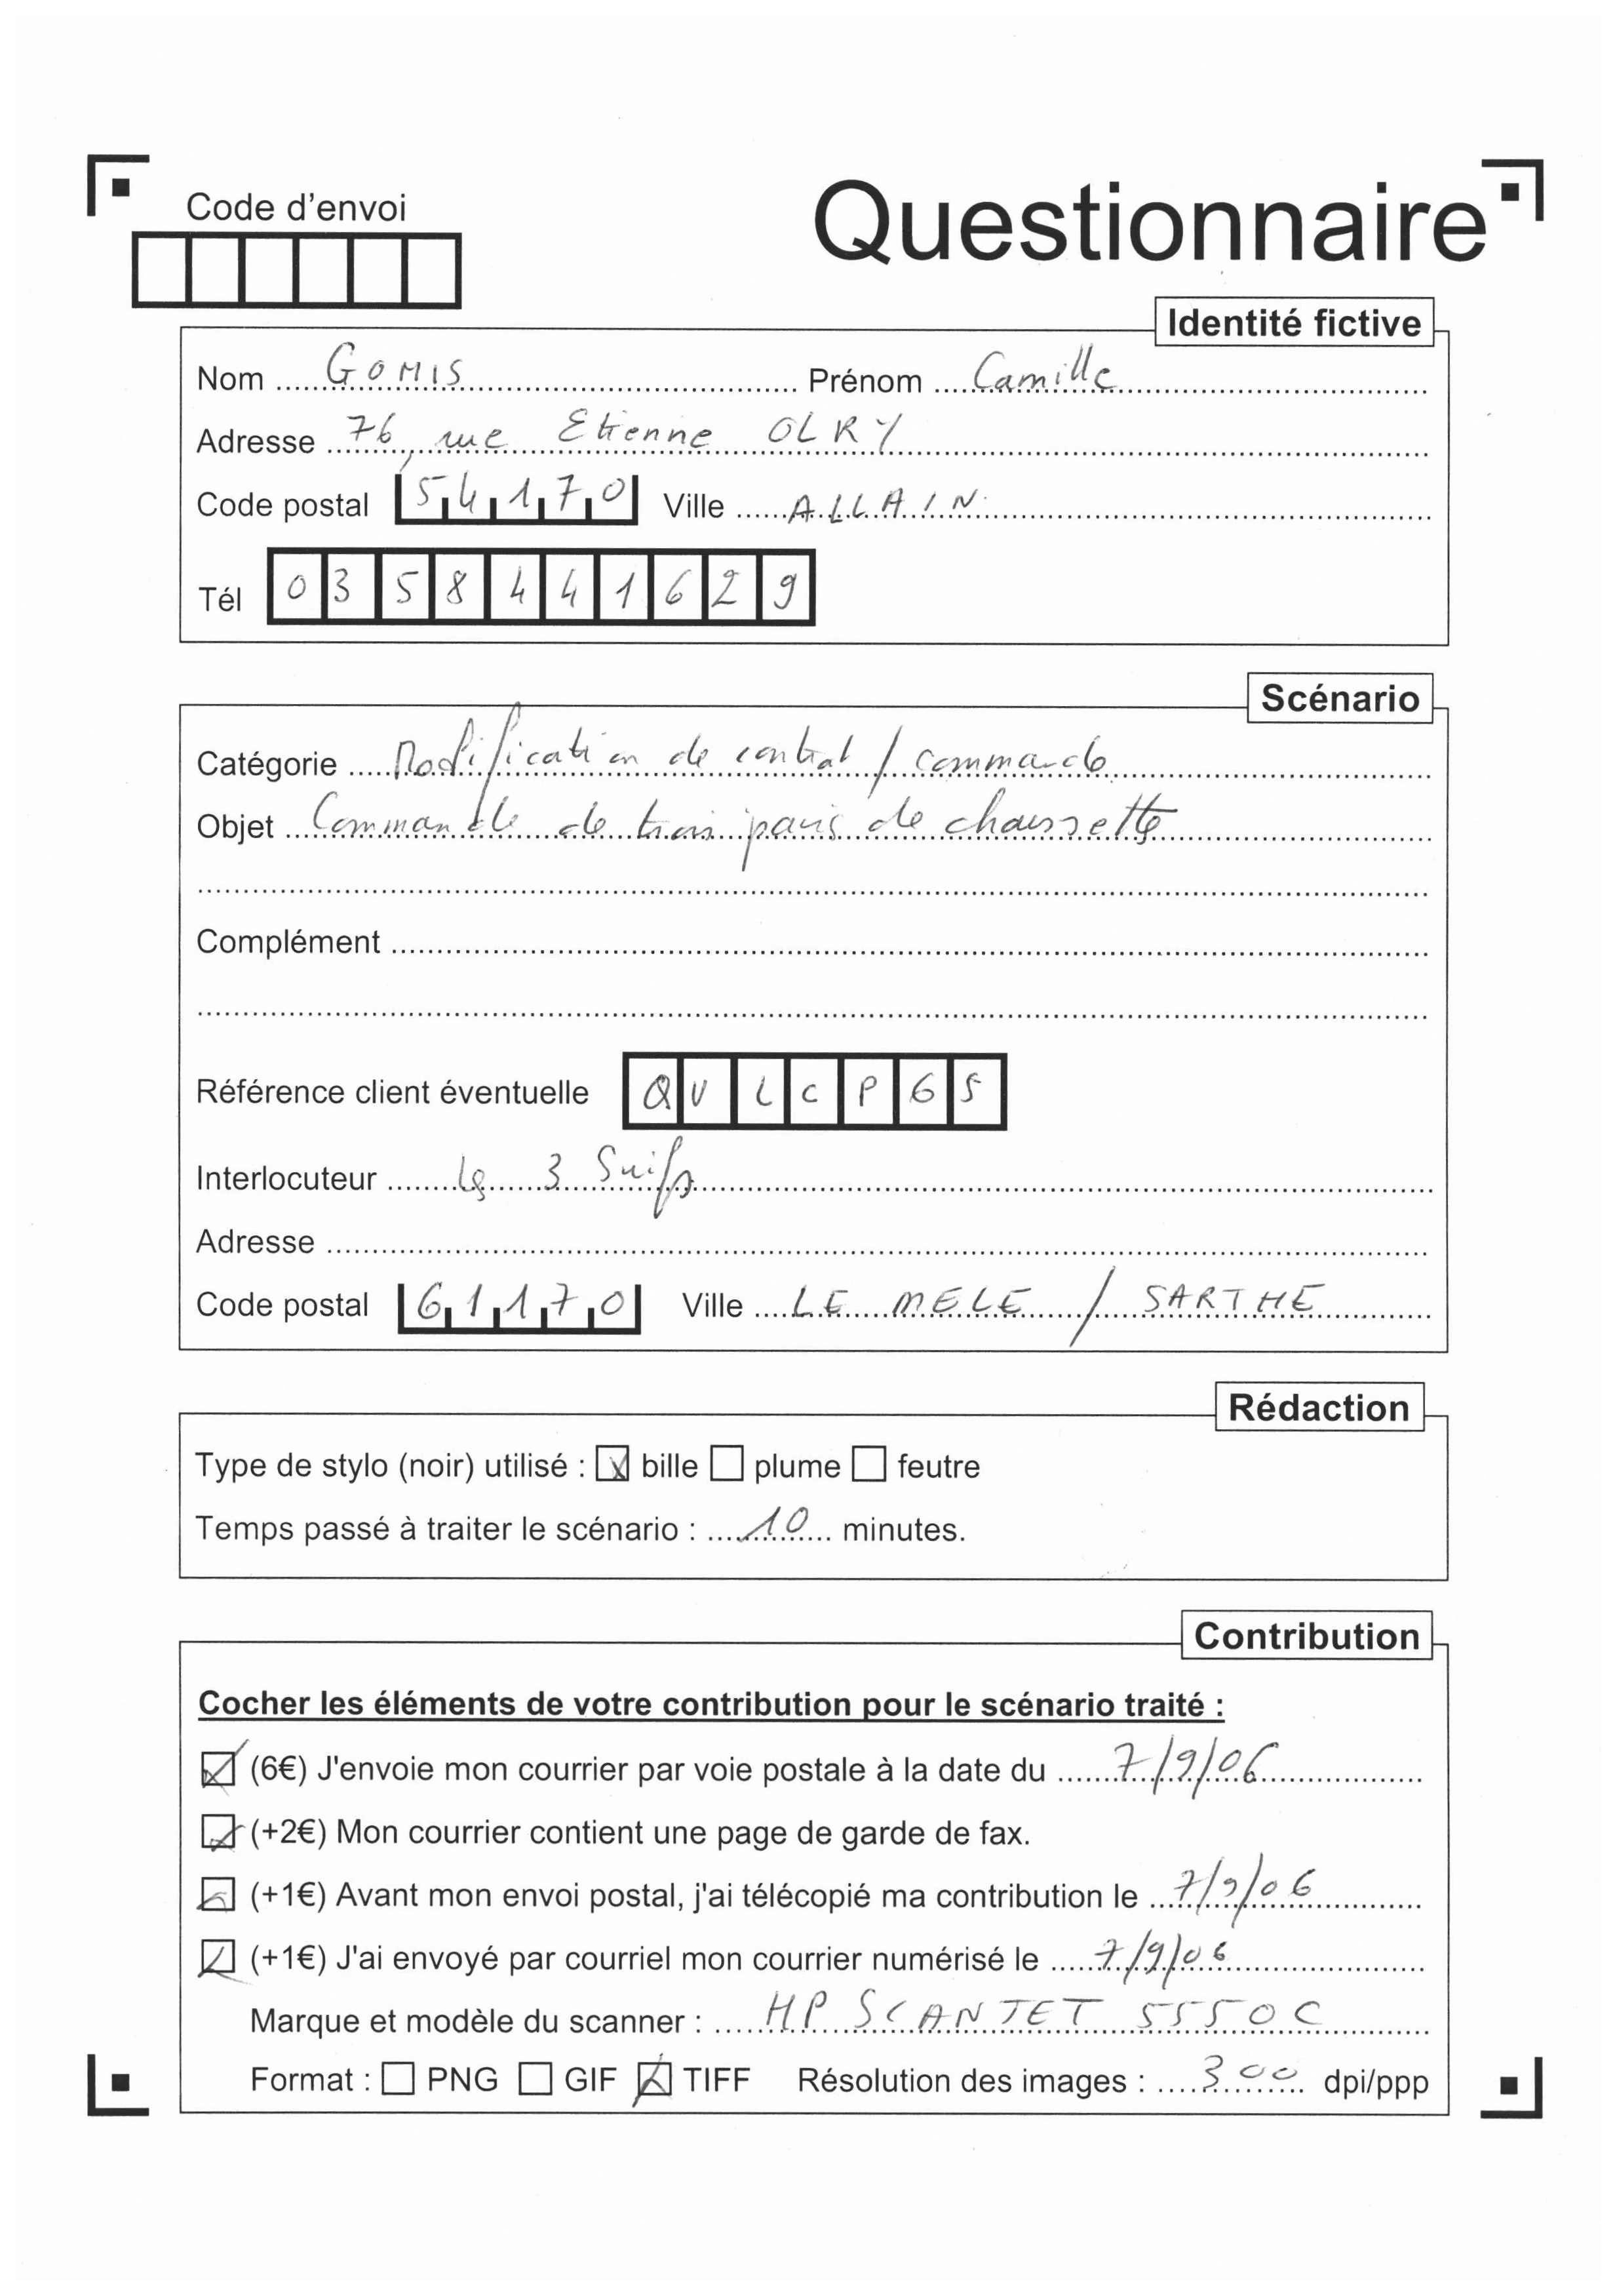 Code d'envoi
Questionnaire
Identité fictive
Nom GOMIS Prénom Camille
Adresse 76, rue Etienne OLRY
Code postal 54170 Ville ALLAIN
Tél 0358441629
Scénario
Catégorie Modification de contrat / commande
Objet Commande de trois paris de chaussette
Complément
Référence client éventuelle QVLCP65
Interlocuteur les 3 Suisses
Adresse
Code postal 61170 Ville LE MELE / SARTHE
Rédaction
Type de stylo (noir) utilisé : bille plume feutre
Temps passé à traiter le scénario : 10 minutes.
Contribution
Cocher les éléments de votre contribution pour le scénario traité :
(6€) J'envoie mon courrier par voie postale à la date du 7/9/06
(+2€) Mon courrier contient une page de garde de fax.
(+1€) Avant mon envoi postal, j'ai télécopié ma contribution le 7/9/06
(+1€) J'ai envoyé par courriel mon courrier numérisé le 7/9/06
Marque et modèle du scanner : HP SCANJET 5550C
Format : PNG GIF TIFF Résolution des images : 300 dpi/ppp